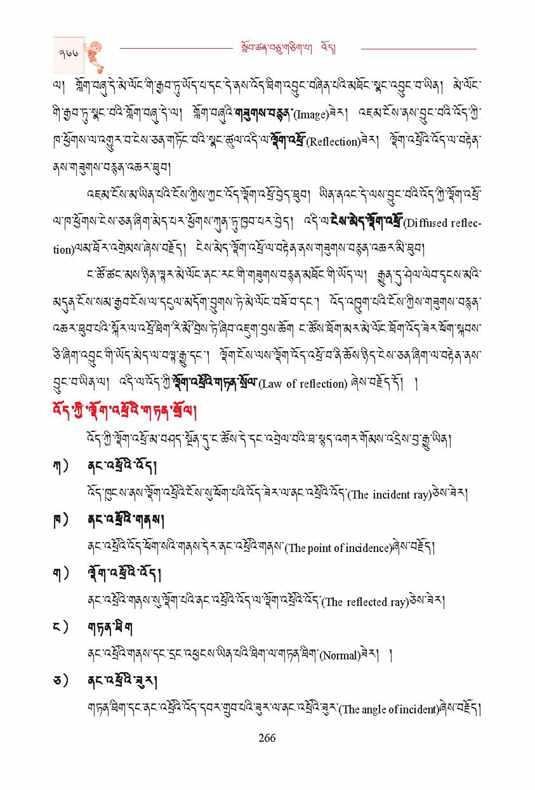 ༢༦༦
སློབ་ཚན་བཅུ་གཅིག་པ། འོད།
ལ། ཀློག་བཞུ་དེ་མེ་ལོང་གི་རྒྱབ་ཏུ་ཡོད་པ་དང་དེ་ནས་འོད་ཐིག་འབྱུང་བཞིན་པའི་མཐོང་སྣང་འབྱུང་བ་ཡིན། མེ་ལོང་
གི་རྒྱབ་ཏུ་སྣང་བའི་ཀློག་བཞུ་དེ་ལ། ཀློག་བཞུའི་གཟུགས་བརྙན་(Image)ཟེར། འཇམ་ངོས་ནས་བྱུང་བའི་འོད་ཀྱི་
ཁ་ཕྱོགས་ལ་འགྱུར་བ་ངེས་ཅན་གཏོང་བའི་སྣང་ཚུལ་འདི་ལ་ལྡོག་འཕྲོ་(Reflection)ཟེར། ལྡོག་འཕྲོའི་འོད་ལ་བརྟེན་
ནས་གཟུགས་བརྙན་འཆར་ཐུབ།
འཇམ་ངོས་མ་ཡིན་པའི་ངོས་ཀྱིས་ཀྱང་འོད་ལྡོག་འཕྲོ་བྱེད་ཐུབ། ཡིན་ནའང་དེ་ལས་བྱུང་བའི་འོད་ཀྱི་ལྡོག་འཕྲོ་
ལ་ཁ་ཕྱོགས་ངེས་ཅན་ཞིག་མེད་པར་ཕྱོགས་ཀུན་ཏུ་ཁྱབ་པར་བྱེད། འདི་ལ་ངེས་མེད་ལྡོག་འཕྲོ་(Diffused reflec-
tion)ལམ་འོར་འགྲེམས་ཞེས་བརྗོད། ངེས་མེད་ལྡོག་འཕྲོ་ལ་བརྟེན་ནས་གཟུགས་བརྙན་འཆར་མི་ཐུབ།
ང་ཚོ་ཚང་མས་ཉིན་ལྟར་མེ་ལོང་ནང་རང་གི་གཟུགས་བརྙན་མཐོང་གི་ཡོད་ལ། རྒྱུན་དུ་ཤེལ་ལེབ་དྭངས་མའི་
མདུན་ངོས་སམ་རྒྱབ་ངོས་ལ་དངུལ་མདོག་བྱུགས་ཏེ་མེ་ལོང་བཟོ་བ་དང་། འོད་འཁྲུག་པའི་ངོས་ཀྱིས་གཟུགས་བརྙན་
འཆར་ཐུབ་པའི་སྐོར་ལ་འཕྲོ་ཐིག་རི་མོ་བྲིས་ཏེ་ཞིབ་འཇུག་བྱས་ཆོག ང་ཚོས་ཕོག་མར་མེ་ལོང་ཐོག་འོད་ཟེར་ཕོག་སྐབས་
ཅི་ཞིག་འབྱུང་གི་ཡོད་མེད་ལ་བལྟ་རྒྱུ་དང་། ལྡོག་ངོས་ལས་ལྡོག་འོད་འཕྲོ་བ་ནི་ཆོས་ཉིད་ངེས་ཅན་ཞིག་ལ་བརྟེན་ནས་
བྱུང་བ་ཡིན་ལ། འདི་ལ་འོད་ཀྱི་ལྡོག་འཕྲོའི་གཏན་སྲོལ་(Law of reflection) ཞེས་བརྗོད་དོ། །
འོད་ཀྱི་ལྡོག་འཕྲོའི་གཏན་སྲོལ།
འོད་ཀྱི་ལྡོག་འཕྲོ་མ་བཤད་སྔོན་དུ་ང་ཚོས་དེ་དང་འབྲེལ་བའི་ཐ་སྙད་འགར་གོམས་འདྲིས་བྱ་རྒྱུ་ཡིན།
ཀ) ནང་འཕྲོའི་འོད།
འོད་ཁུངས་ནས་ལྡོག་འཕྲོའི་ངོས་སུ་ཕོག་པའི་འོད་ཟེར་ལ་ནང་འཕྲོའི་འོད་(The incident ray)ཅེས་ཟེར།
ཁ) ནང་འཕྲོའི་གནས།
ནང་འཕྲོའི་འོད་ཕོག་སའི་གནས་དེར་ནང་འཕྲོའི་གནས་(The point of incidence)ཞེས་བརྗོད།
ག) ལྡོག་འཕྲོའི་འོད།
ནང་འཕྲོའི་གནས་སུ་ལྡོག་པའི་ནང་འཕྲོའི་འོད་ལ་ལྡོག་འཕྲོའི་འོད་(The reflected ray)ཅེས་ཟེར།
ང) གཏན་ཐིག
ནང་འཕྲོའི་གནས་དང་དྲང་འཕྱངས་ཡིན་པའི་ཐིག་ལ་གཏན་ཐིག་(Normal)ཟེར། །
ཅ) ནང་འཕྲོའི་ཟུར།
གཏན་ཐིག་དང་ནང་འཕྲོའི་འོད་དབར་གྲུབ་པའི་ཟུར་ལ་ནང་འཕྲོའི་ཟུར་(The angle of incident)ཞེས་བརྗོད།
266